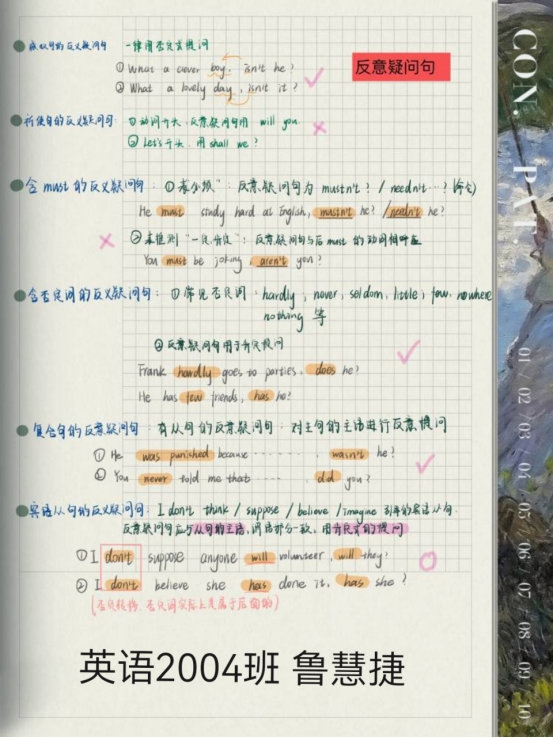 反意疑问句
感叹句的反义疑问句 一律用否定式提问
① What a clever boy, isn't he?
② What a lovely day, isn't it?
祈使句的反义疑问句: ① 动词开头,反意疑问句用 will you.
② Let's 开头,用 shall we?
含 must 的反义疑问句: ① 表"必须": 反意疑问句为 mustn't? / needn't…? (命令)
He must study hard at English, mustn't he? / needn't he?
② 表推测"一定,肯定": 反意疑问句与后 must 的动词相呼应
You must be joking, aren't you?
含否定词的反义疑问句: ① 常见否定词: hardly, never, seldom, little, few, nowhere
nothing 等
② 反意疑问句用于肯定提问
Frank hardly goes to parties, does he?
He has few friends, has he?
复合句的反意疑问句: 有从句的反意疑问句: 对主句的主语进行反意提问
① He was punished because ········, wasn't he?
② You never told me that ········, did you?
宾语从句的反义疑问句: I don't think / suppose / believe / imagine 引导的宾语从句.
反意疑问句应与从句的主语,谓语部分一致,用肯定式的提问
① I don't suppose anyone will volunteer, will they?
② I don't believe she has done it, has she?
(否定转移,否定词实际上是属于后面的)
英语2004班 鲁慧捷
CON. PAT.
01 / 02 / 03 / 04 / 05 / 06 / 07 / 08 / 09 / 10